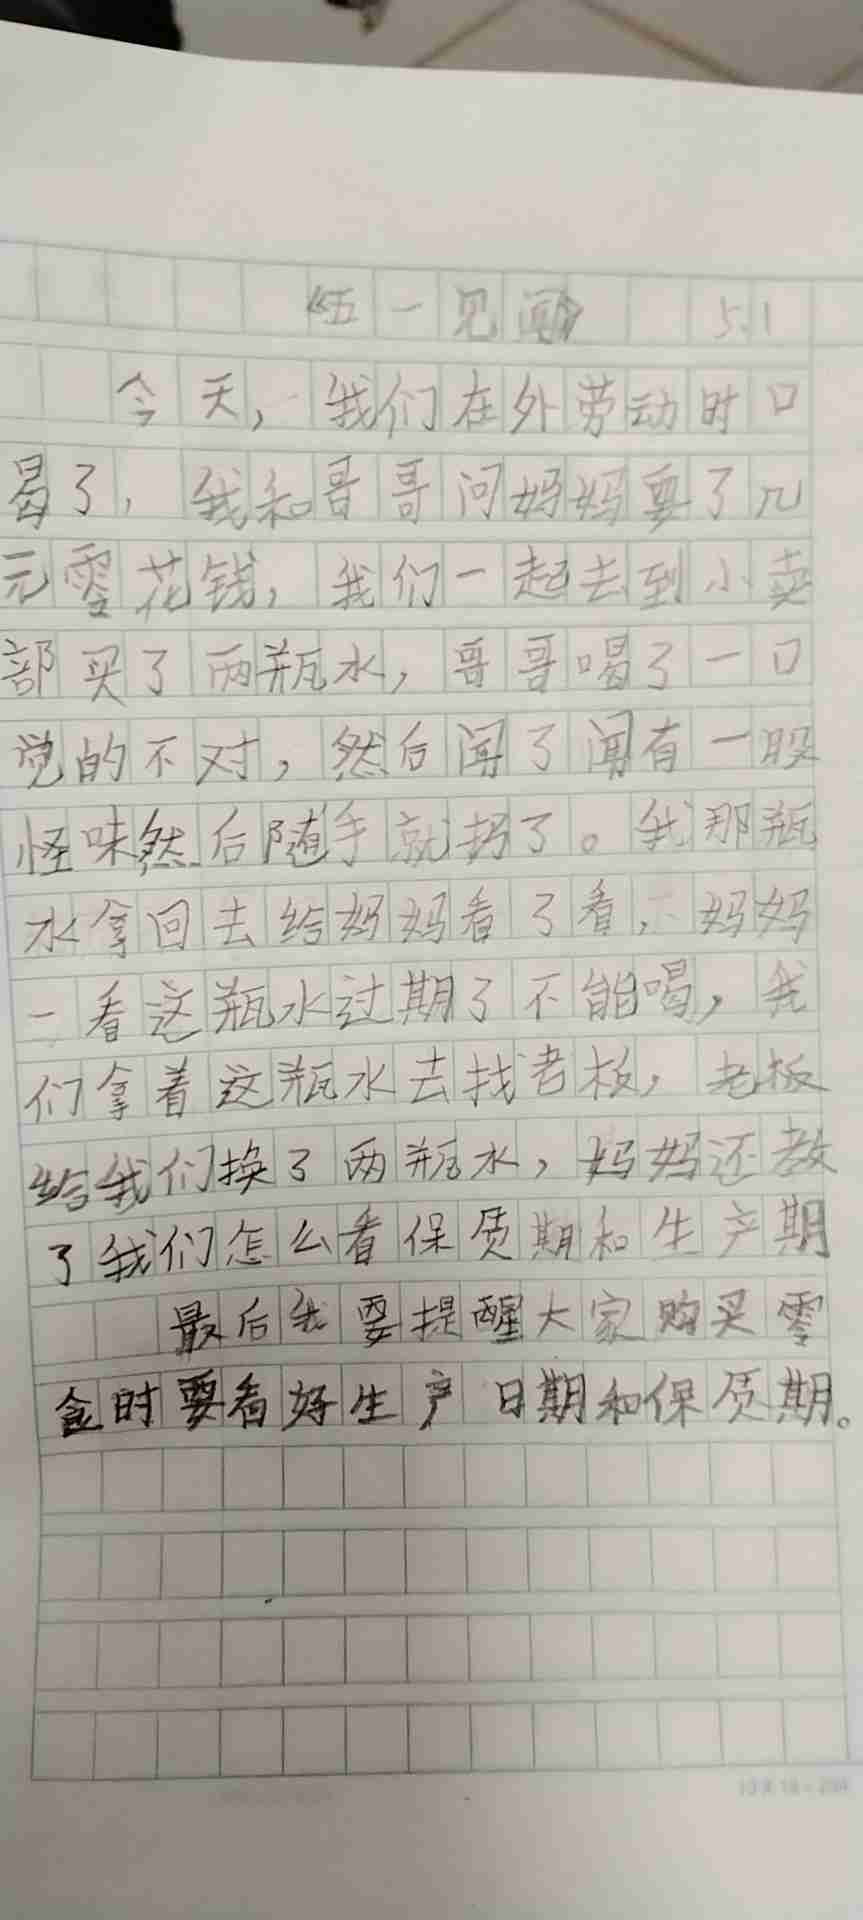 《五一见闻》 5.1
今天,我们在外劳动时口
曷了,我和哥哥问妈妈要了几
元零花钱,我们一起去到小卖
部买了两瓶水,哥哥喝了一口
觉的不对,然后闻了闻有一股
怪味然后随手就扔了。我那瓶
水拿回去给妈妈看了看,妈妈
一看这瓶水过期了不能喝,我
们拿着这瓶水去找老板,老板
给我们换了两瓶水,妈妈还教
了我们怎么看保质期和生产期
最后我要提醒大家购买零
食时要看好生产日期和保质期。